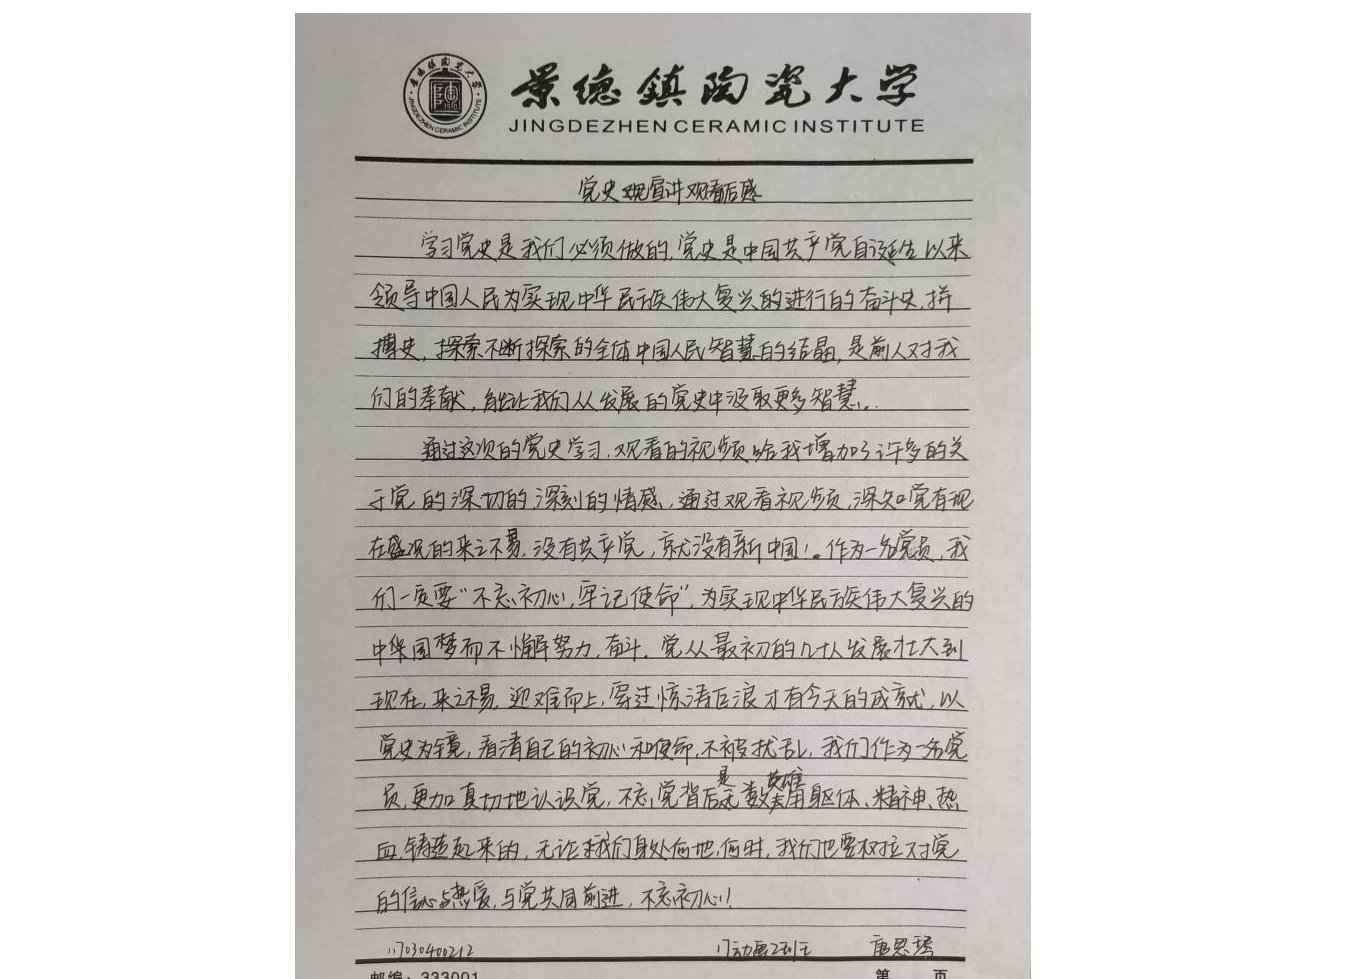 景德鎮陶瓷大学
JINGDEZHEN CERAMIC INSTITUTE
景德鎮陶瓷大学
JINGDEZHEN CERAMIC INSTITUTE
党史观宣讲观看后感
学习党史是我们必须做的,党史是中国共产党自诞生以来
领导中国人民为实现中华民族伟大复兴的进行的奋斗史,拼
搏史,探索不断探索的全体中国人民智慧的结晶,是前人对我
们的奉献,能让我们从发展的党史中汲取更多智慧。
通过这次的党史学习,观看的视频给我增加了许多的关
于党的深切的深刻的情感,通过观看视频,深知党有现
在盛况的来之不易,没有共产党,就没有新中国!。作为一名党员,我
们一定要“不忘初心,牢记使命”,为实现中华民族伟大复兴的
中华国梦而不懈努力,奋斗。党从最初的几十人发展壮大到
现在,来之不易,迎难而上,穿过惊涛巨浪才有今天的成就,以
党史为镜,看清自己的初心和使命,不被扰乱,我们作为一名党
员,更加真切地认识党,不忘,党背后是无数英雄用躯体、精神、热
血铸造起来的,无论我们身处何地,何时,我们也要树立对党
的信心与热爱,与党共同前进,不忘初心!
17030400212
17动画2班
唐思琦
邮编:333001
第 页